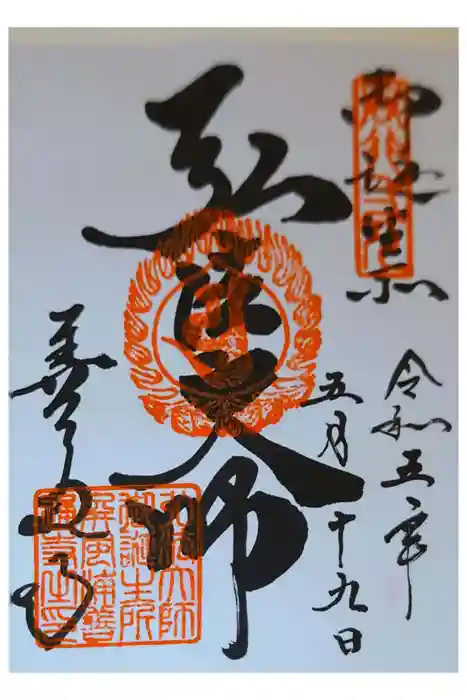 御誕生所
令和五年
五月十九日
弘法大師
善通寺
弘法大師
御誕生所
屏風浦善
通寺之印